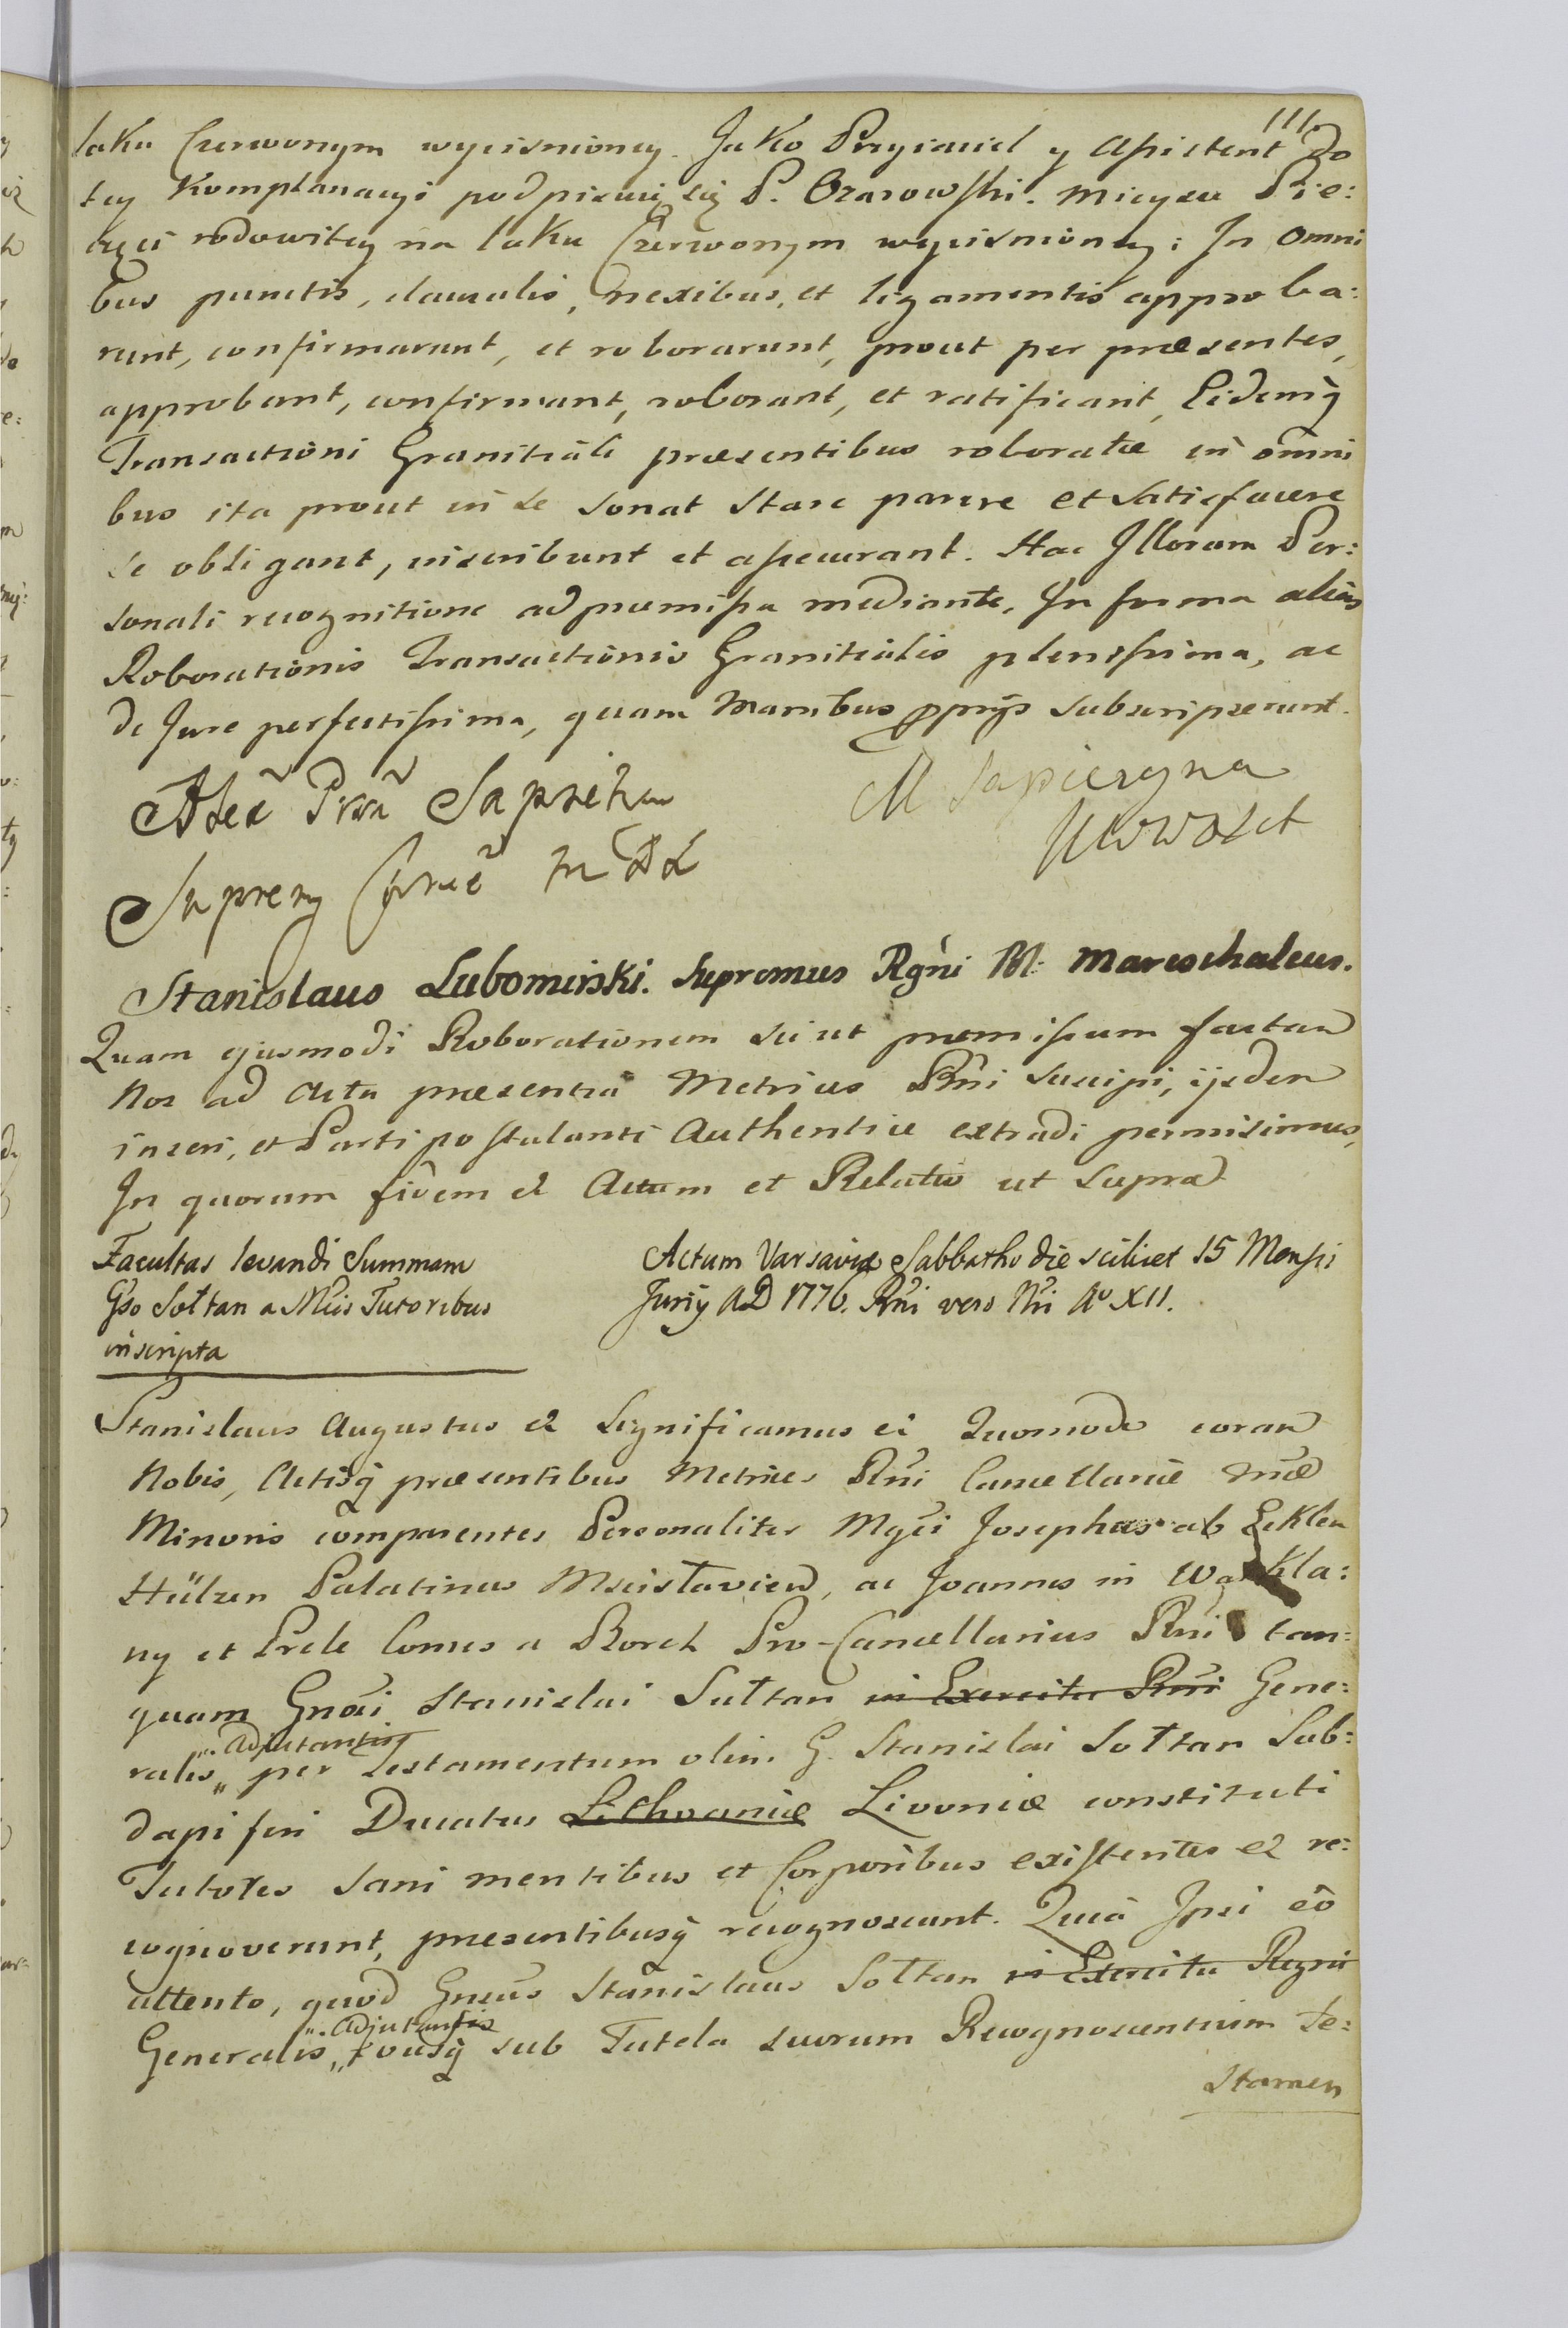 111.
laku Czerwonym wycisnioney. Jako Przyiaciel y Assistent do
tey Komplanacyi podpisuię się P. Ożarowski. Mieysce Pie:
częci rodowitey na laku Czerwonym wycisnioney: In omni
bus punctis, clausulis, nexibus, et ligamentis approba:
runt, confirmarunt, et roborarunt, prout per præsentes,
approbant, confirmant, roborant, et ratificant, Eidemq̃
Transactioni Granitiali præsentibus roboratæ in omni
bus ita prout in se sonat stare parere et satisfacere
se obligant, inscribunt et assecurant. Hac Illorum Per:
sonali recognitione ad præmissa mediante, In forma alias
Roborationis Transactionis Granitialis plenissima, ac
de Jure perfectissima, quam Manibus pprijs subscripserunt.
Alex̃ Sapieha
M Sapiezyna
Stanislaus Lubomirski. Supremus Rgñi M: Mareschalcus.
Quam ejusmodi Roborationem sicut præmissum factam
Nos ad Acta præsentia Metrices Rñi suscipi, ijsdem
inseri, et Parti postulanti Authentice extradi permisimus,
In quorum fidem et Actum et Relatio ut supra
Facultas levandi Summam
Gso Sołtan a Mcis Tutoribus
inscripta
Actum Varsaviæ Sabbatho die scilicet 15 Mensis
Junij AD 1776. Rñi vero Nñi Ao XII.
Stanislaus Augustus et Significamus ei Quomodo coram
Nobis, Actisq̃ præsentibus Metrices Rñi Cancellariæ Nræ
Minoris comparentes Personaliter Mgci Josephus ab Ecklen
Hülzen Palatinus Mscislavien, ac Joannes in Warkla:
ny et Prele Comes a Borch Pro-Cancellarius Rñi tan:
quam Gnosi Stanislai Sułtan in Exercitu Rñi Gene:
„. Adjutantis
ralis „ per Testamentum olim G. Stanislai Sołtan Sub:
dapiferi Ducatus Lithvaniæ Livoniæ constituti
Tutores sani mentibus et Corporibus existentes et re:
cognoverunt, præsentibusq̃ recognoscunt. Quia Ipsi eo
attento, quod Gnosus Stanislaus Sołtan in Exercitu Regni
„. Adjutantis
Generalis „ sub Tutela suorum Recognoscentium Te:
stamen